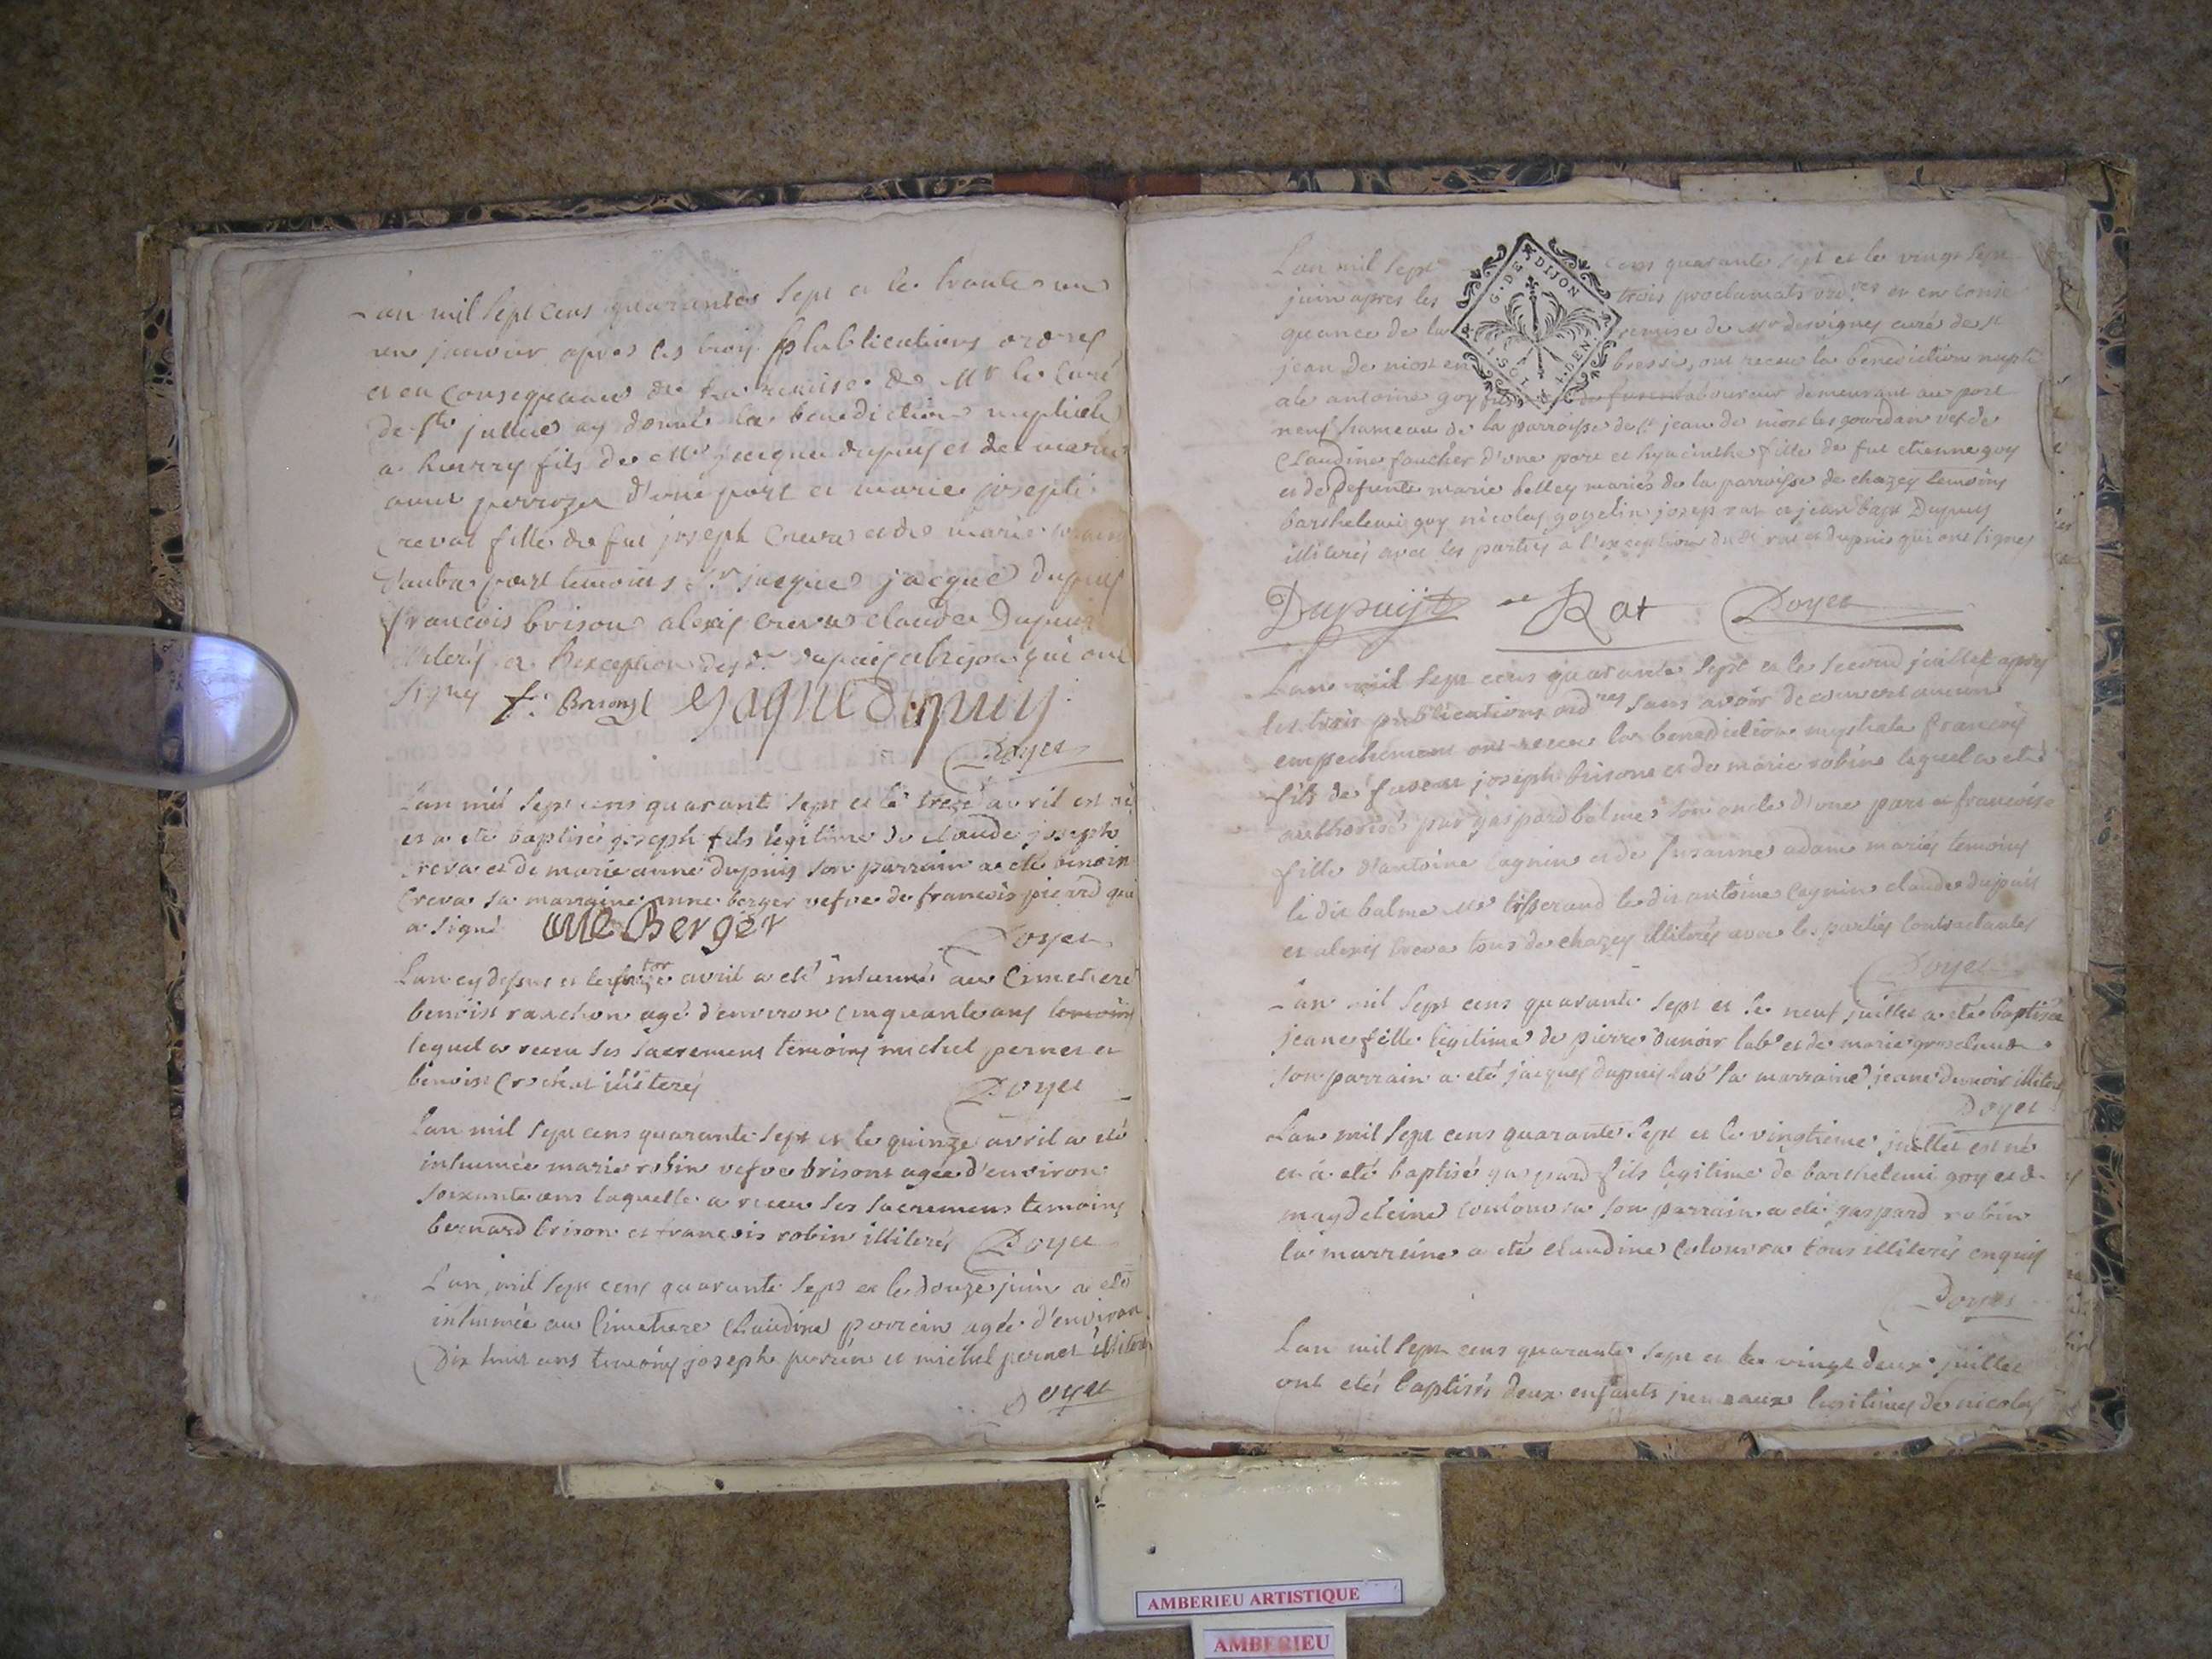 L'an mil sept cens quarante sept et le trente un
en janvier apres les trois publications ordres
et en consequance de la remise de Mr le curé
de ste jullie ay donné la benediction nuptiale
a fils de Mre jacque dupuis et de marie
anne d'une part et marie josepte
Creva fille de fut joseph Creva et de marie
d'autre part temoins Sr jacque jacque dupuis
francois brison alexis creva claude Dupuis
illiterés a l'exception desdt dupuis et brison qui ont
signés f. Brisont Jaque dupuis
Doyen
L'an mil sept cens quarante sept et le treze avril est né
et a eté baptisé joseph fils legitime de claude joseph
creva et de marie anne dupuis son parrain a eté benoit
Creva sa marraine anne berger vefve de francois qui
a signé anne Berger
Doyen
L'an cy dessus et le avril a eté inhumé au Cimetiere
benoist agé d'environ cinquante ans temoins
lequel a receu ses sacremens temoins michel pernet et
benoist Crochet illiterés
Doyen
L'an mil sept cens quarante sept et le quinze avril a eté
inhumée marie robin vefve brisont agée d'environ
soixante ans laquelle a receu ses sacremens temoins
bernard brison et francois robin illiterés Doyen
L'an mil sept cens quarante sept et le douze juin a eté
inhumée au Cimetiere Claudine perrein agée d'environ
Dix huit ans temoins joseph perrein et michel pernet illiterés
Doyen
L'an mil sept cens quarante sept et le vingt sept
juin apres les trois proclamats ordres et en conse
quance de la remise de Mr desvignes curé de st
jean de niost en bresse, ont receu la benediction nupti
ale antoine goy fils laboureur demeurant au port
neuf hameau de la parroisse de st jean de niost les gourdan vef de
Claudine faucher d'une part et hyacinthe fille de fut etienne goy
et de defunte marie belley mariés de la parroisse de chazey temoins
barthelemi goy nicolas goyelin josep rat et jean bapt Dupuis
illiterés avec les parties a l'exception dudt rat et dupuis qui ont signés
G. DE DIJON
Dupuijt Rat Doyen
L'an mil sept cens quarante sept et le second juillet apres
les trois publications ordres sans avoir decouvert aucun
empechement ont receu la benediction nuptiale francois
fils de joseph brisone et de marie robine lequel a eté
authorisé par gaspard balme son oncle d'une part et francoise
fille d'antoine cagnin et de susanne adam mariés temoins
le dit balme tisserand le dit antoine Cagnin claude dupuis
et alexis creva tous de chazey illiterés avec les parties contractantes
Doyen
L'an mil sept cens quarante sept et le neuf juillet a eté baptisée
jeane fille legitime de pierre dunoir labr et de marie
son parrain a eté jacques dupuis labr sa marraine jeane dunoir illiterés
Doyen
L'an mil sept cens quarante sept et le vingtieme juillet est né
et a eté baptisé gaspard fils legitime de barthelemi goy et de
magdeleine coulouvra son parrain a eté gaspard robin
la marreine a eté claudine Colouvra tous illiterés enquis
Doyen
L'an mil sept cens quarante sept et le vingt deux juillet
ont etés baptisés deux enfants jumeaux legitimes de nicolas
AMBERIEU ARTISTIQUE
AMBERIEU